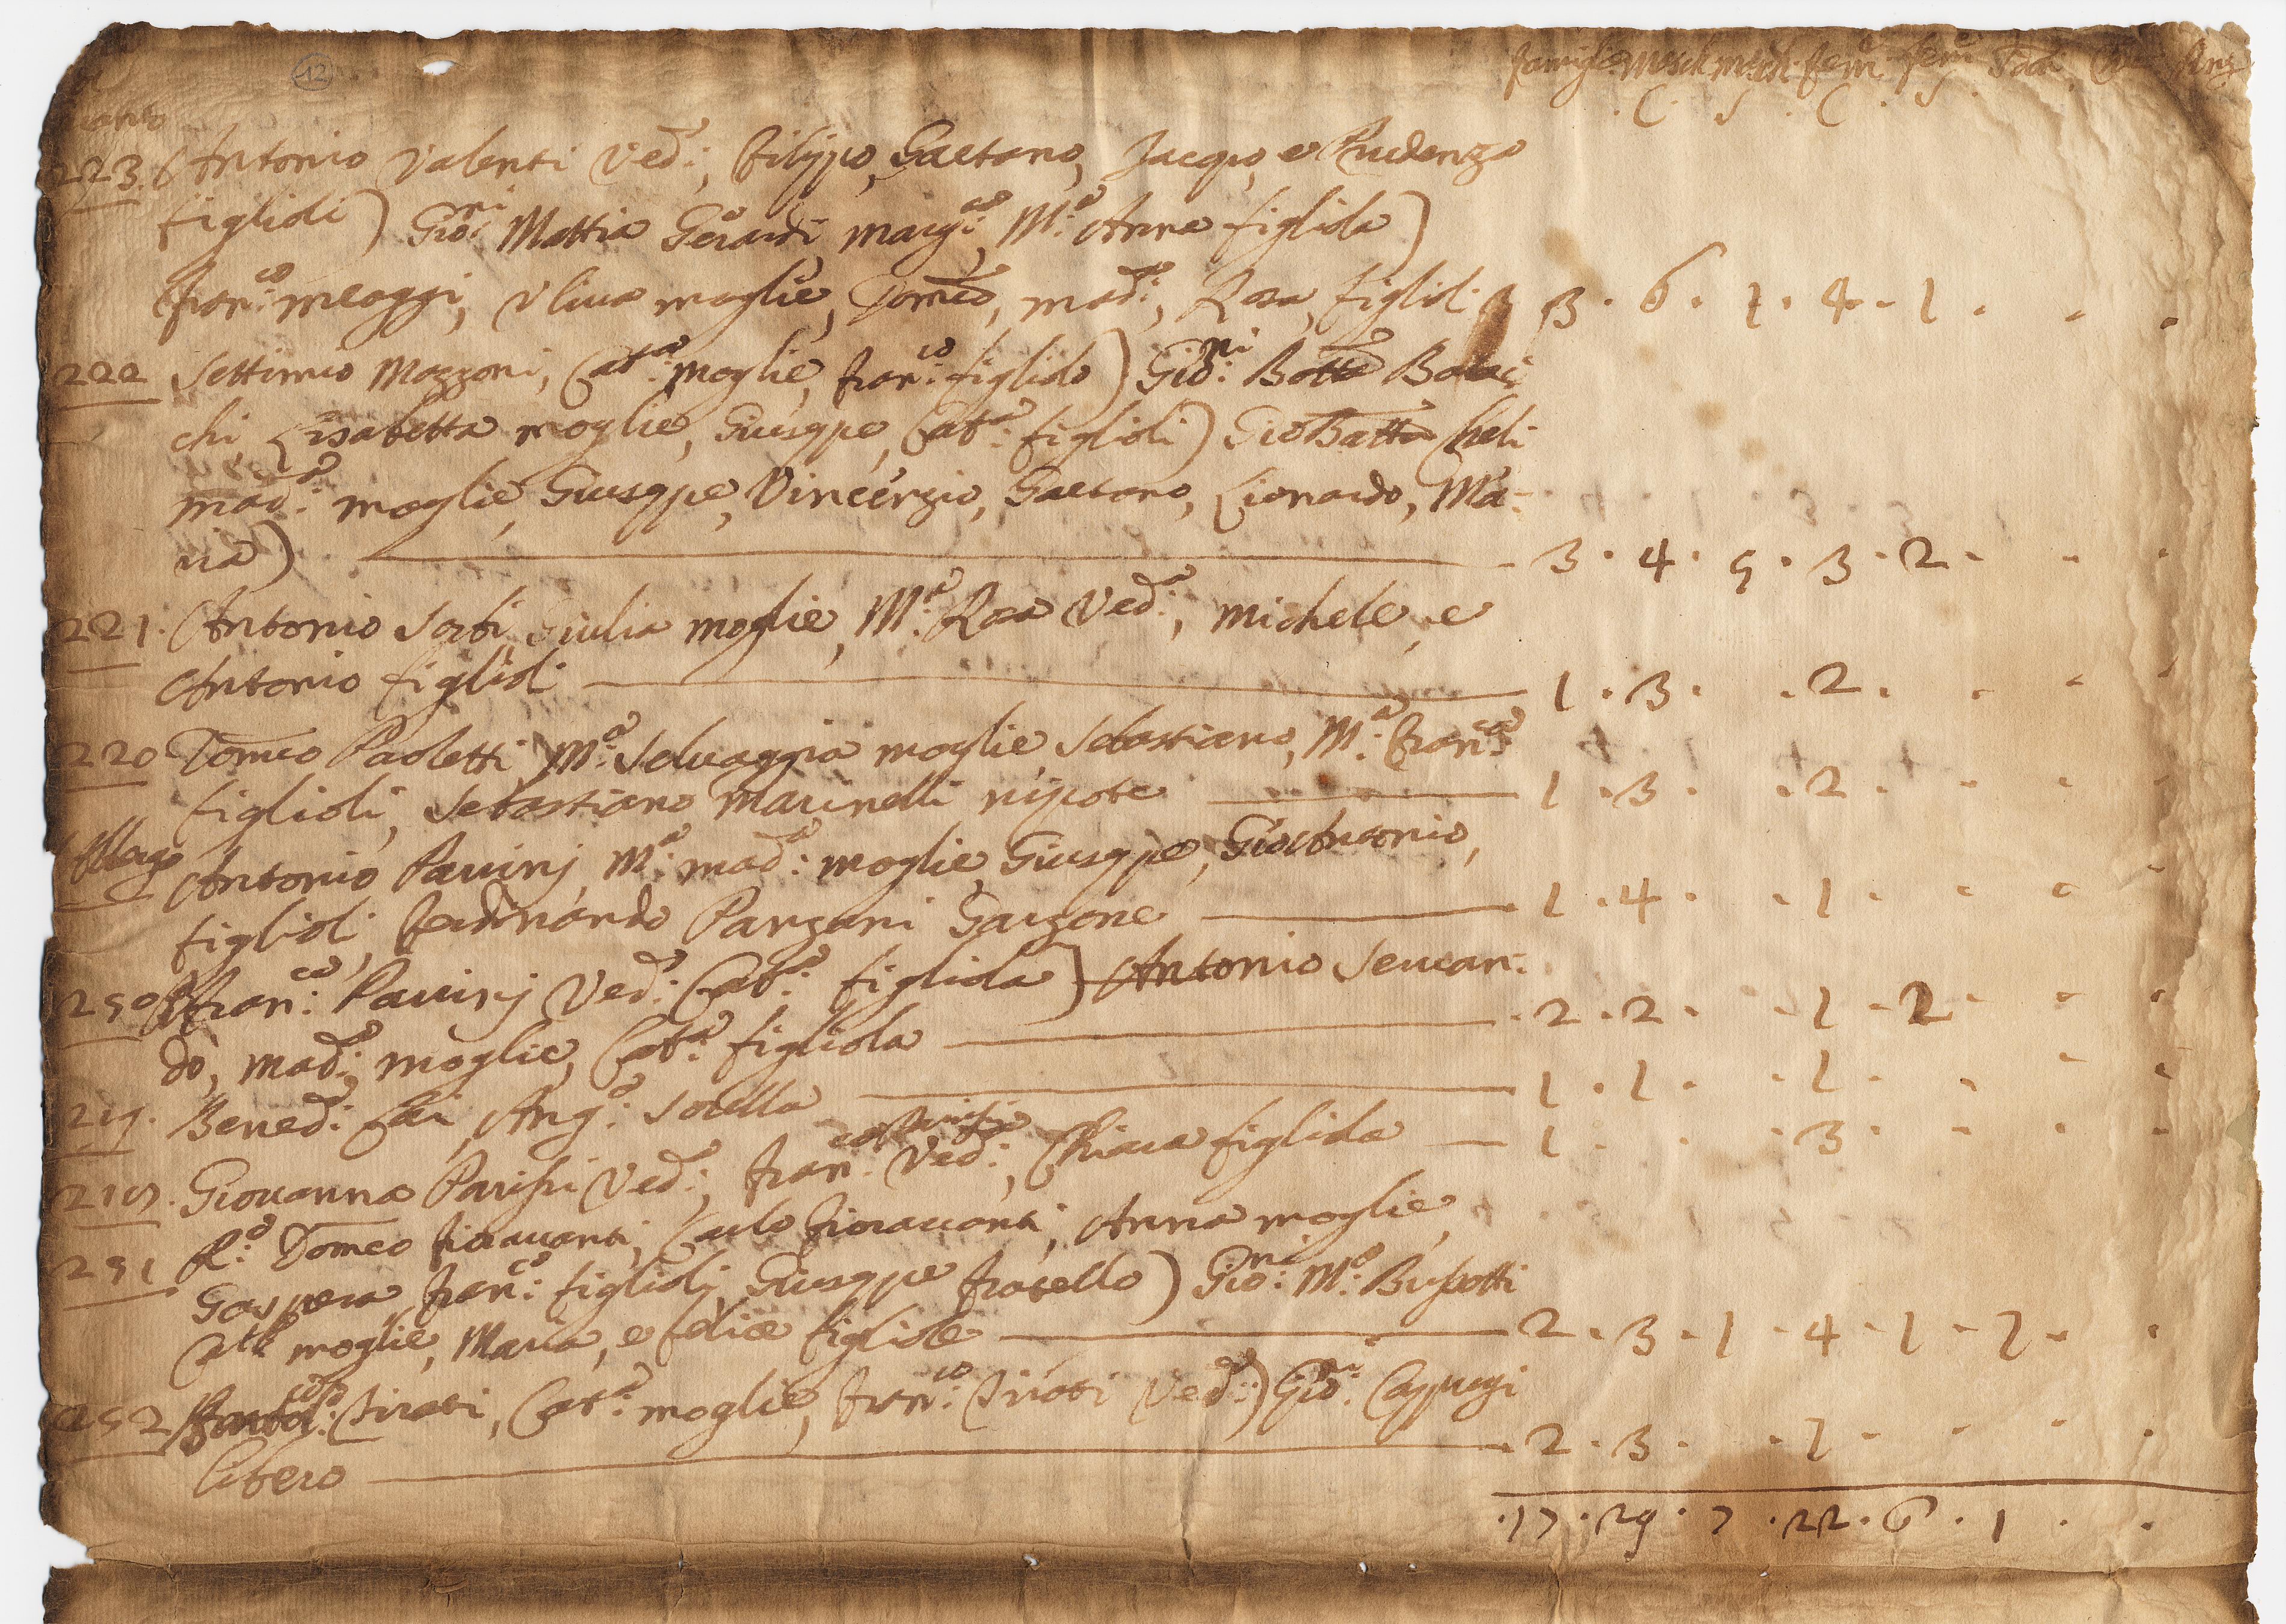 12
famiglie masch masch fem: fem:
. C . S . C . S .
223. Antonio Valenti Ved:, Filippo, Gaetano, Jacopo, e Prudenza
figlioli) Gio:ni Mattia Gerardi, marg:ta M:a Anna figliola)
fran:co meoggi, Uliva moglie, Domco, mad:, Rosa, figlioli 3 . 6 . 1 . 4 . 1 .
222 Settimio Mazzoni, Cat:a moglie, fran:co figliolo) Gio:ni Batta
chi, Lisabetta moglie, Giuseppe, Cat:a figlioli) GioBatta Cheli
mad:a moglie, Giuseppe, Vincenzio, Gaetano, Lionardo, Ma-
ria) 3 . 4 . 5 . 3 . 2 .
221. Antonio Sorbi, Giulia moglie, M:a Rosa Ved:a, Michele, e
Antonio figlioli 1 . 3 . . 2 .
220 Domco Paoletti, M:a Selvaggia moglie, Sebastiano, M:a Fran:ca
figlioli, Sebastiano Marinelli nipote 1 . 3 . . 2 .
Antonio Pavinj, M:a mad:a moglie, Giuseppe, Gio Antonio,
figlioli, Ferdinando Panzani Garzone 1 . 4 . . 1 .
250 fran:co Pavinj Ved:o Cat:a figliola) Antonio Sencar:
do, mad:a moglie, Cat:a figliola . 2 . 2 . . 1 . 2
219. Bened:o Lai, Ang:a Sorella 1 . 1 . . 1 .
218. Giovanna Parissi Ved:a, fran:ca Parissi Ved:a, Chiara figliola 1 . . . 3 .
251 R:o Domco fioravanti, Carlo fioravanti, Anna moglie,
Gaspera, fran:co figlioli, Giuseppe fratello) Gio:ni M:a Bussotti
Catt moglie, Maria, e felice figliole 2 . 3 . 1 . 4 . 1 . 1 .
252 Cirati, Cat:a moglie, fran:co Cirati Ved:o) Gio:ni Cappugi
libero . 2 . 3 . . 1 .
. 17 . 29 . 7 . 22 . 6 . 1 . .